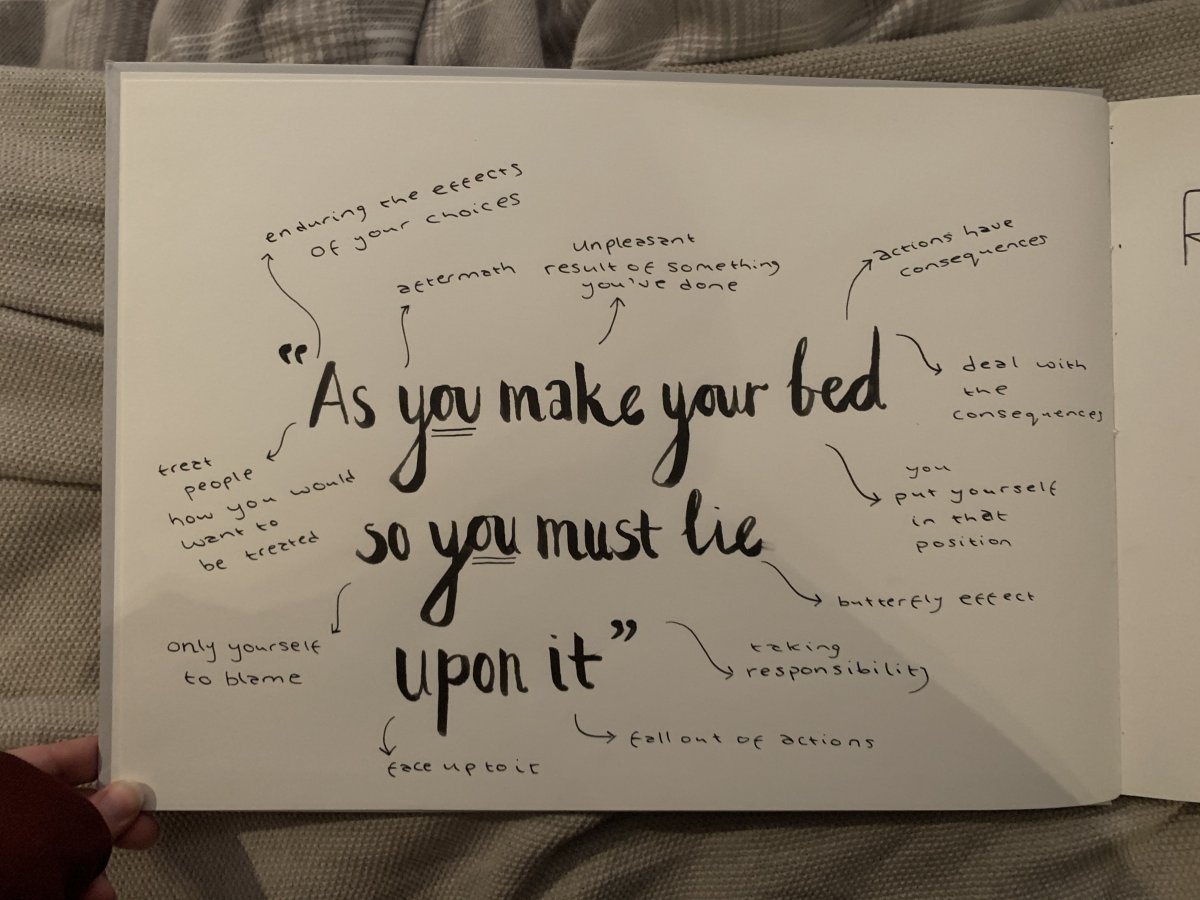 enduring the effects
of your choices
aftermath
Unpleasant
result of something
you've done
actions have
consequences
"As you make your bed
deal with
the
consequences
treat
people
how you would
want to
be treated
you
put yourself
in that
position
so you must lie
butterfly effect
only yourself
to blame
upon it"
taking
responsibility
fall out of actions
face up to it